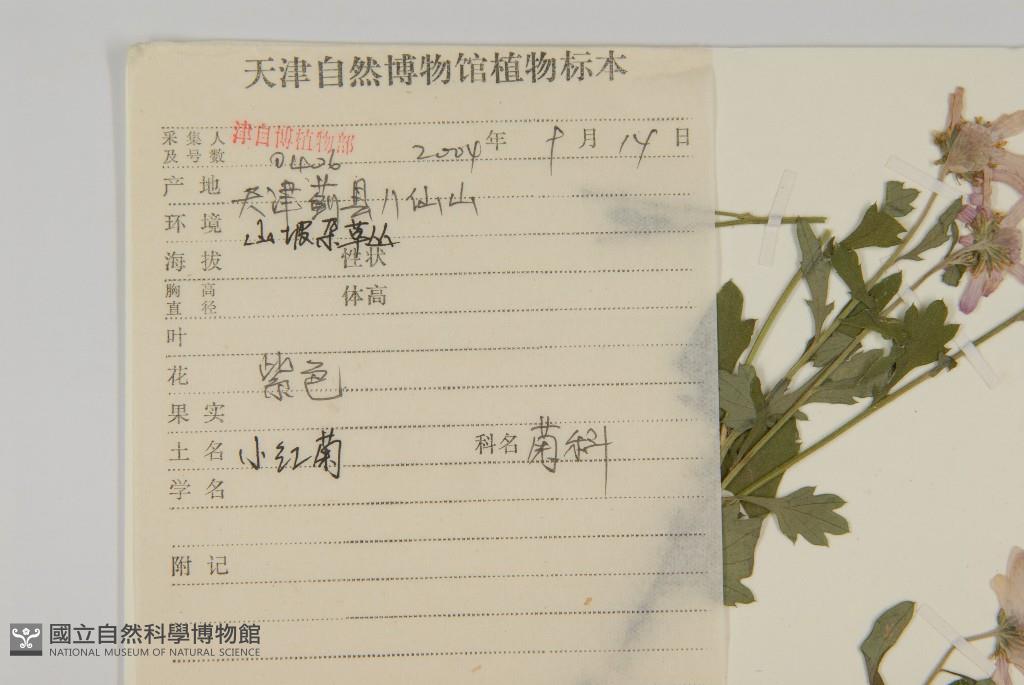 天津自然博物馆植物标本
采集人及号数 津自博植物部 2004年 9月 14日
01406
产地 天津蓟县八仙山
环境 山坡杂草丛
海拔 性状
胸高直径 体高
叶
花 紫色
果实
土名 小红菊 科名 菊科
学名
附记
國立自然科學博物館
NATIONAL MUSEUM OF NATURAL SCIENCE